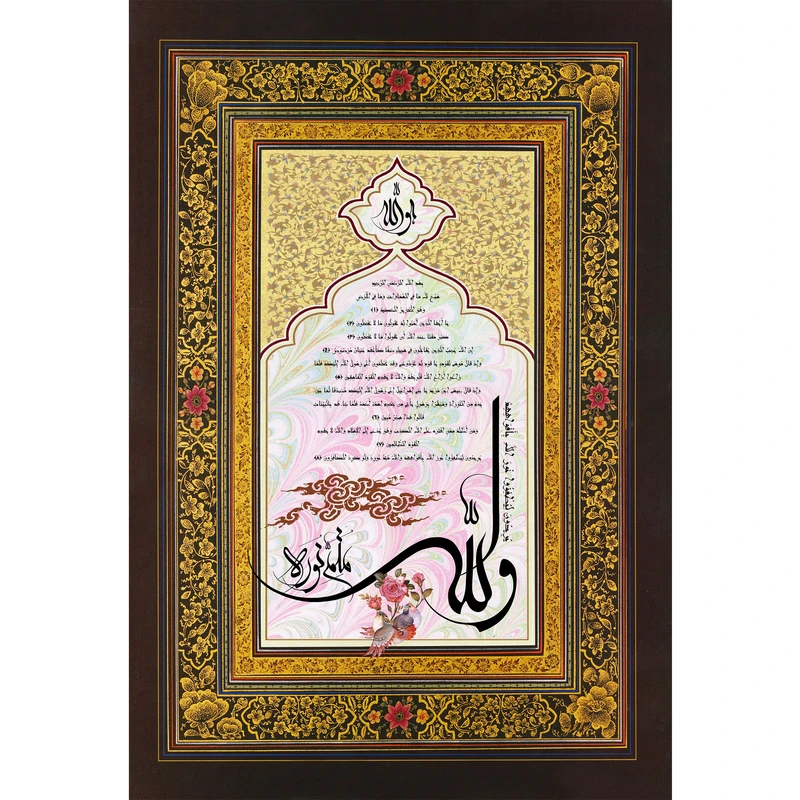 هو الله
بسم الله الرحمن الرحيم
سبح لله ما في السماوات وما في الأرض
وهو العزيز الحكيم (۱)
يا أيها الذين آمنوا لم تقولون ما لا تفعلون (۲)
كبر مقتا عند الله أن تقولوا ما لا تفعلون (۳)
إن الله يحب الذين يقاتلون في سبيله صفا كأنهم بنيان مرصوص (۴)
وإذ قال موسى لقومه يا قوم لم تؤذونني وقد تعلمون أني رسول الله إليكم فلما
زاغوا أزاغ الله قلوبهم والله لا يهدي القوم الفاسقين (۵)
وإذ قال عيسى ابن مريم يا بني إسرائيل إني رسول الله إليكم مصدقا لما بين
يدي من التوراة ومبشرا برسول يأتي من بعدي اسمه أحمد فلما جاءهم بالبينات
قالوا هذا سحر مبين (۶)
ومن أظلم ممن افترى على الله الكذب وهو يدعى إلى الإسلام والله لا يهدي
القوم الظالمين (۷)
يريدون ليطفؤوا نور الله بأفواههم والله متم نوره ولو كره الكافرون (۸)
يريدون ليطفؤوا نور الله بأفواههم
والله متم نوره